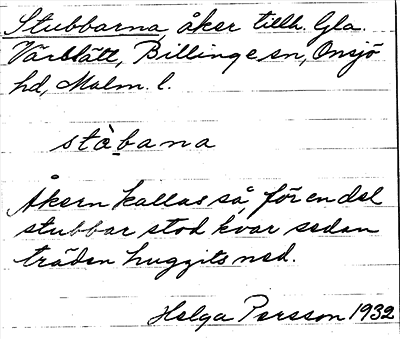 Stubbarna, åker tillh. Gla.
Värslätt, Billinge sn, Onsjö
hd, Malm. l.
stòbana
Åkern kallas så, för en del
stubbar stod kvar sedan
träden huggits ned.
Helga Persson 1932